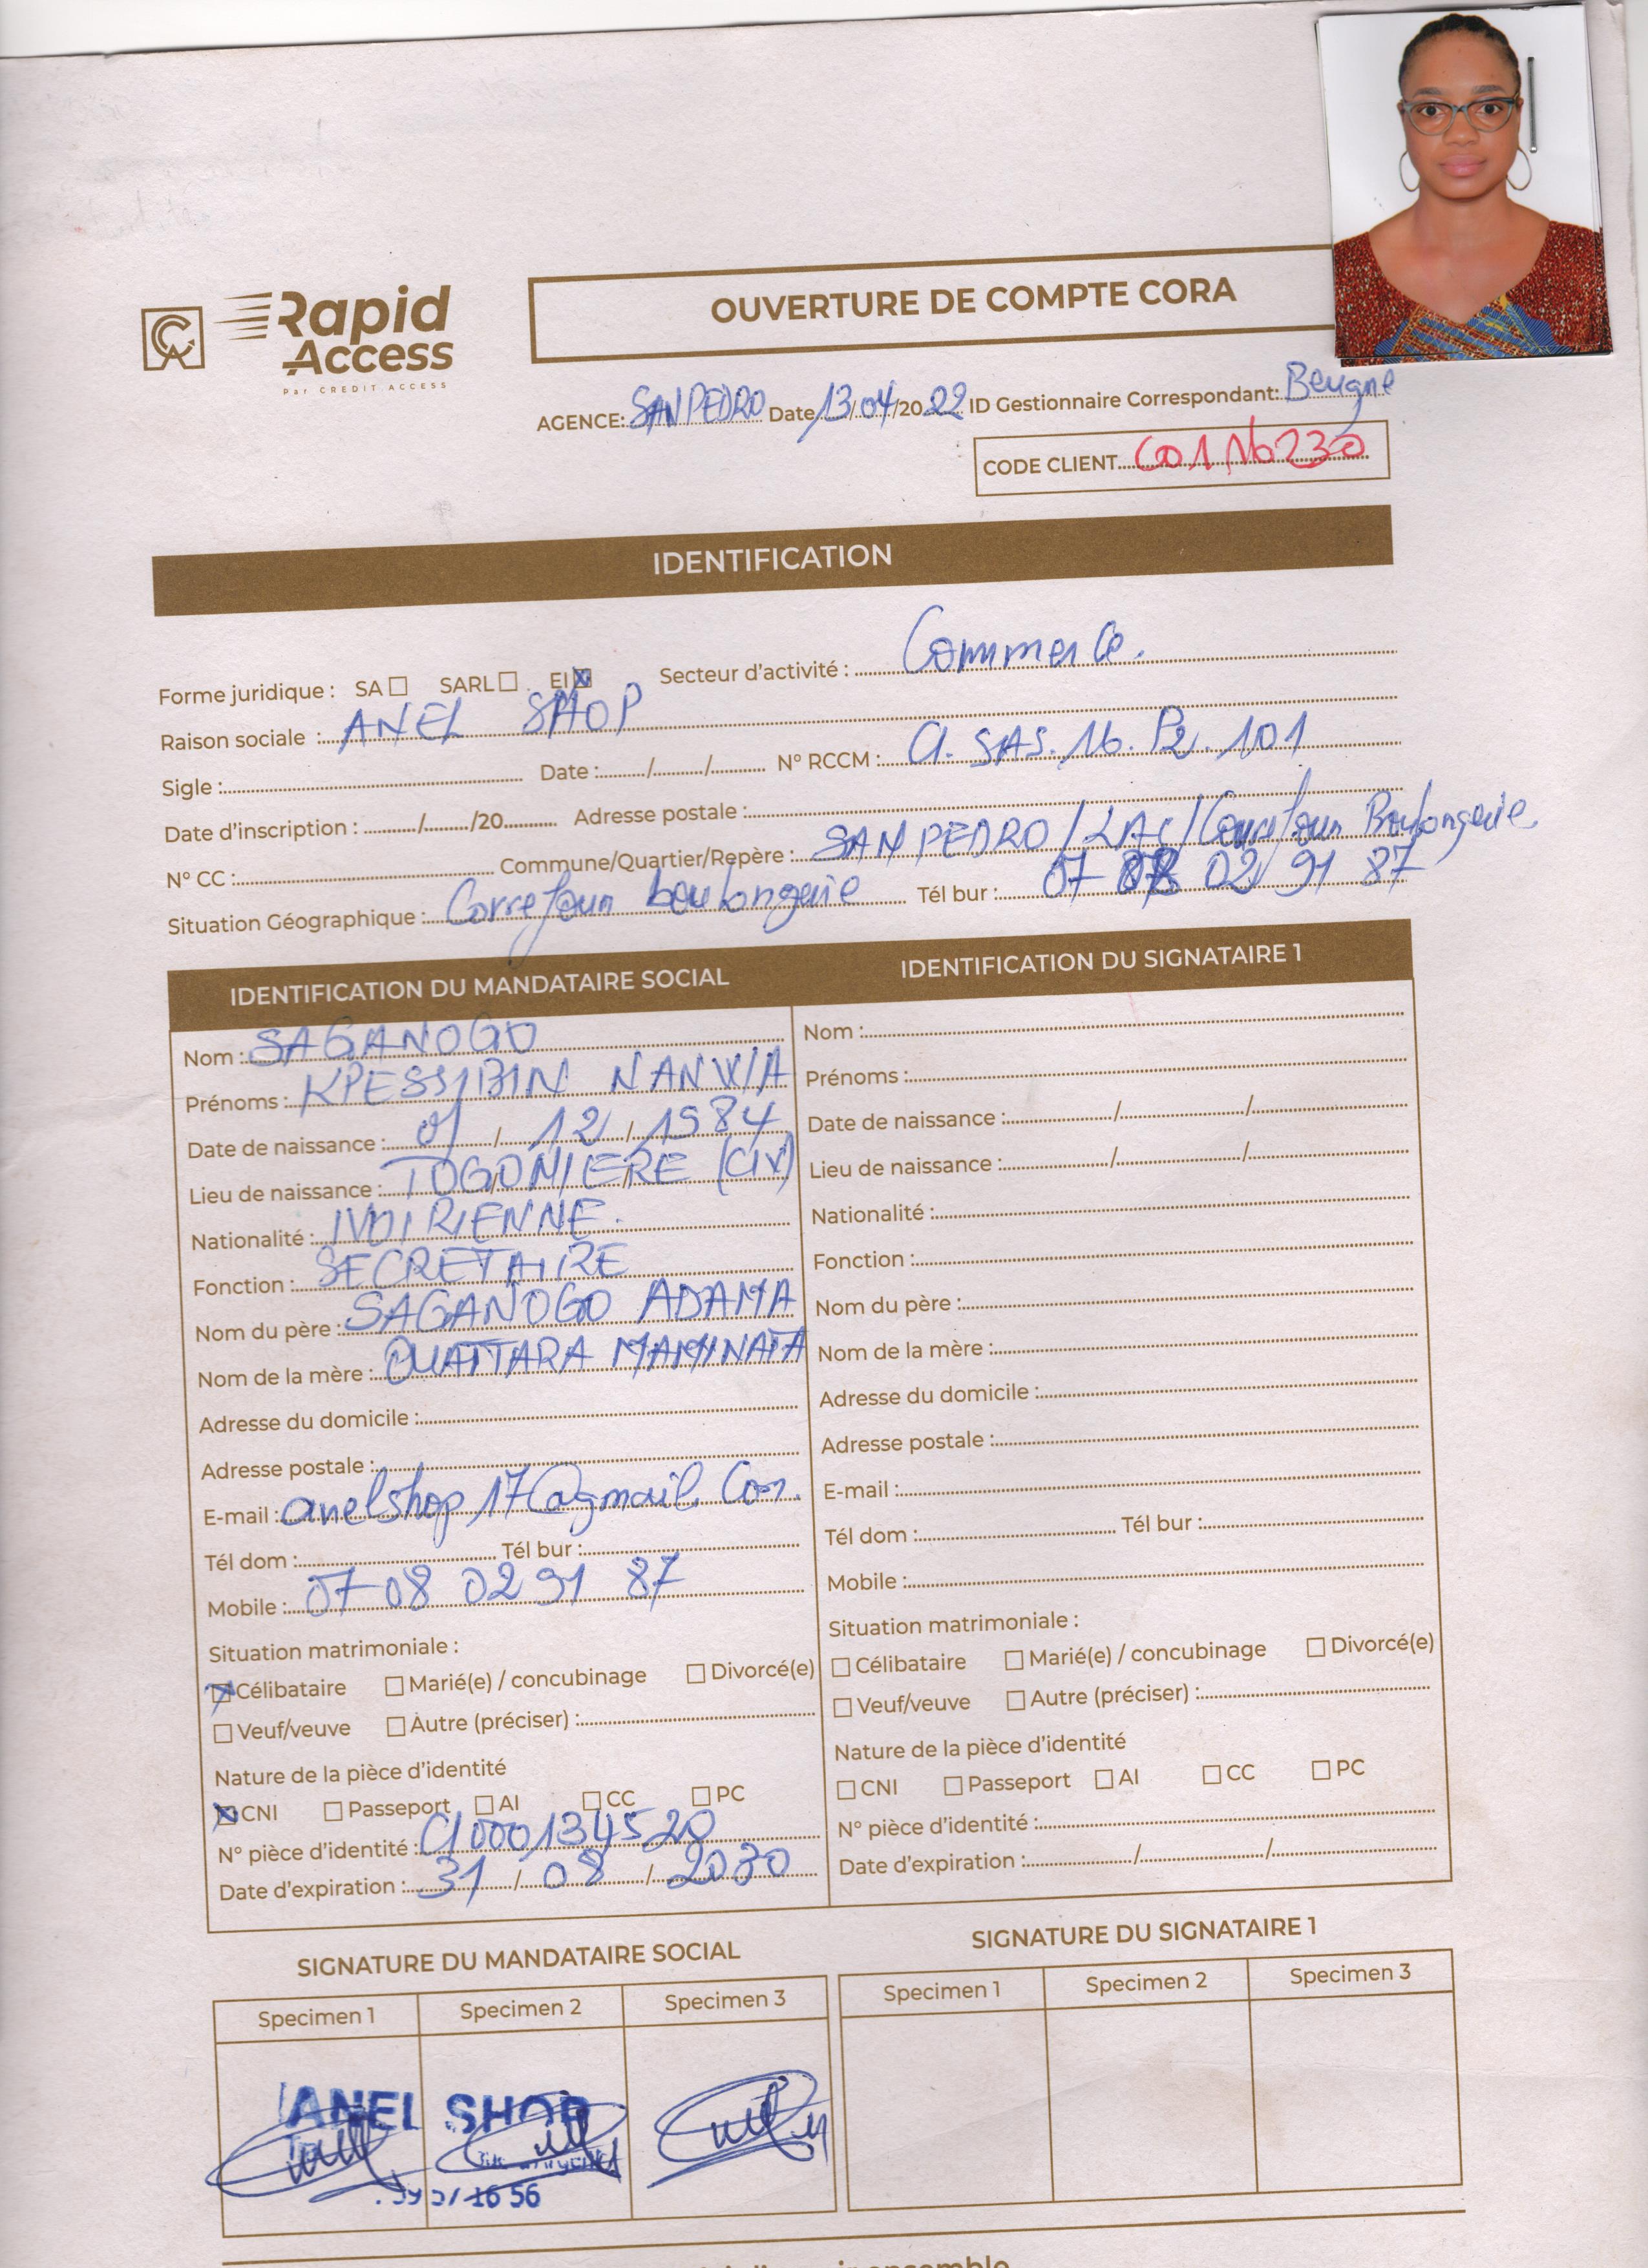 OUVERTURE DE COMPTE CORA
Rapid Access
Par CREDIT ACCESS
AGENCE: SAN PEDRO Date 13/04/2022 ID Gestionnaire Correspondant: Beugne
CODE CLIENT C01 16230
IDENTIFICATION
Forme juridique : SA SARL EI Secteur d'activité : Commerce.
Raison sociale : ANEL SHOP
Sigle : Date : / / N° RCCM : CI. SAS. 16. P2. 101
Date d'inscription : / /20 Adresse postale :
N° CC : Commune/Quartier/Repère : SAN PEDRO / LAC / Carrefour Boulongerie
Situation Géographique : Correfour boulongerie Tél bur : 07 08 02 91 87
IDENTIFICATION DU MANDATAIRE SOCIAL
Nom : SAGANOGO
Prénoms : KPESSIBIN NANWIA
Date de naissance : 01 / 12 / 1984
Lieu de naissance : TOGONIERE (CIV)
Nationalité : IVOIRIENNE.
Fonction : SECRETAIRE
Nom du père : SAGANOGO ADAMA
Nom de la mère : OUATTARA MAMINATA
Adresse du domicile :
Adresse postale :
E-mail : anelshop17@gmail.Com.
Tél dom : Tél bur :
Mobile : 07 08 02 91 87
Situation matrimoniale :
Célibataire Marié(e) / concubinage Divorcé(e)
Veuf/veuve Autre (préciser) :
Nature de la pièce d'identité
CNI Passeport AI CC PC
N° pièce d'identité : CI000134520
Date d'expiration : 31 / 08 / 2030
IDENTIFICATION DU SIGNATAIRE 1
Nom :
Prénoms :
Date de naissance : / /
Lieu de naissance : / /
Nationalité :
Fonction :
Nom du père :
Nom de la mère :
Adresse du domicile :
Adresse postale :
E-mail :
Tél dom : Tél bur :
Mobile :
Situation matrimoniale :
Célibataire Marié(e) / concubinage Divorcé(e)
Veuf/veuve Autre (préciser) :
Nature de la pièce d'identité
CNI Passeport AI CC PC
N° pièce d'identité :
Date d'expiration : / /
SIGNATURE DU MANDATAIRE SOCIAL
Specimen 1 Specimen 2 Specimen 3
ANEL SHOP
16 56
SIGNATURE DU SIGNATAIRE 1
Specimen 1 Specimen 2 Specimen 3